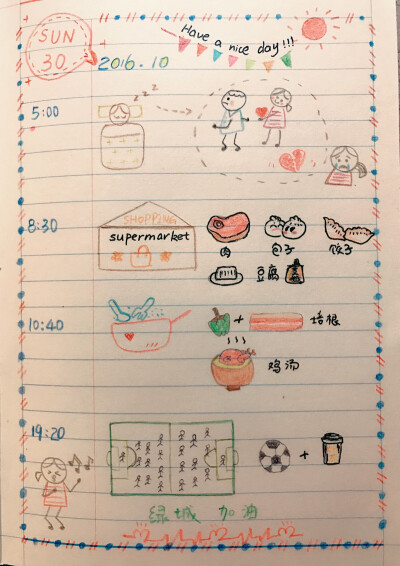 Have a nice day!!!
SUN
30
2016.10
5:00
zzz
8:30
SHOPPING
supermarket
肉
包子
饺子
豆腐
10:40
+
培根
鸡汤
19:20
+
绿城 加油